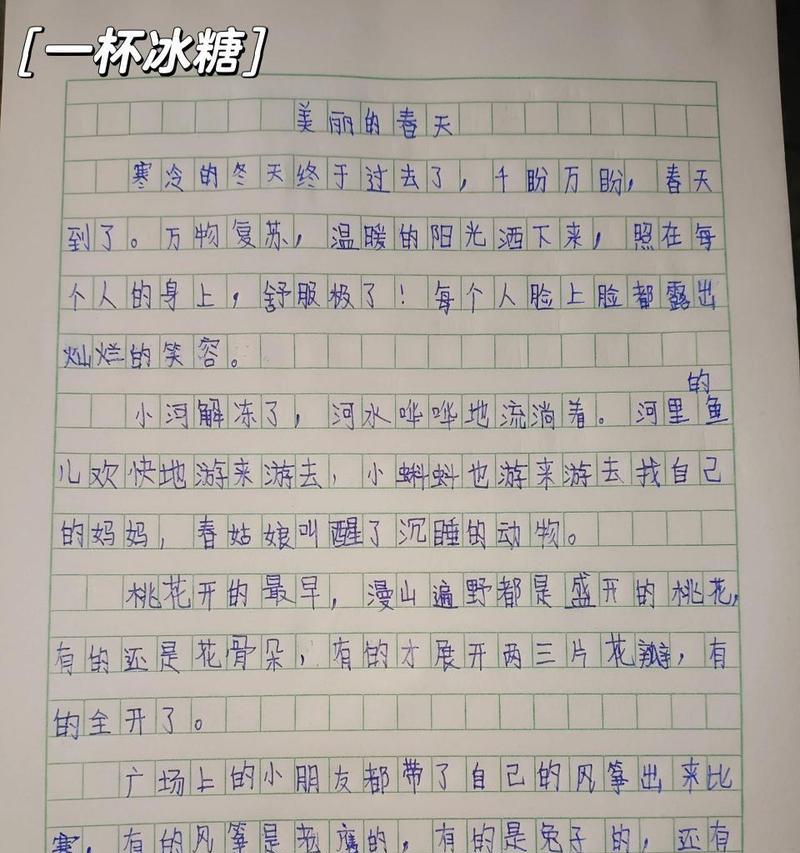 [一杯冰糖]
美丽的春天
寒冷的冬天终于过去了，千盼万盼，春天
到了。万物复苏，温暖的阳光洒下来，照在每
个人的身上，舒服极了！每个人脸上脸都露出
灿烂的笑容。
小河解冻了，河水哗哗地流淌着。河里的鱼
儿欢快地游来游去，小蝌蚪也游来游去找自己
的妈妈，春姑娘叫醒了沉睡的动物。
桃花开的最早，漫山遍野都是盛开的桃花，
有的还是花骨朵，有的才展开两三片花瓣，有
的全开了。
广场上的小朋友都带了自己的风筝出来比
赛，有的风筝是老鹰的，有的是兔子的，还有